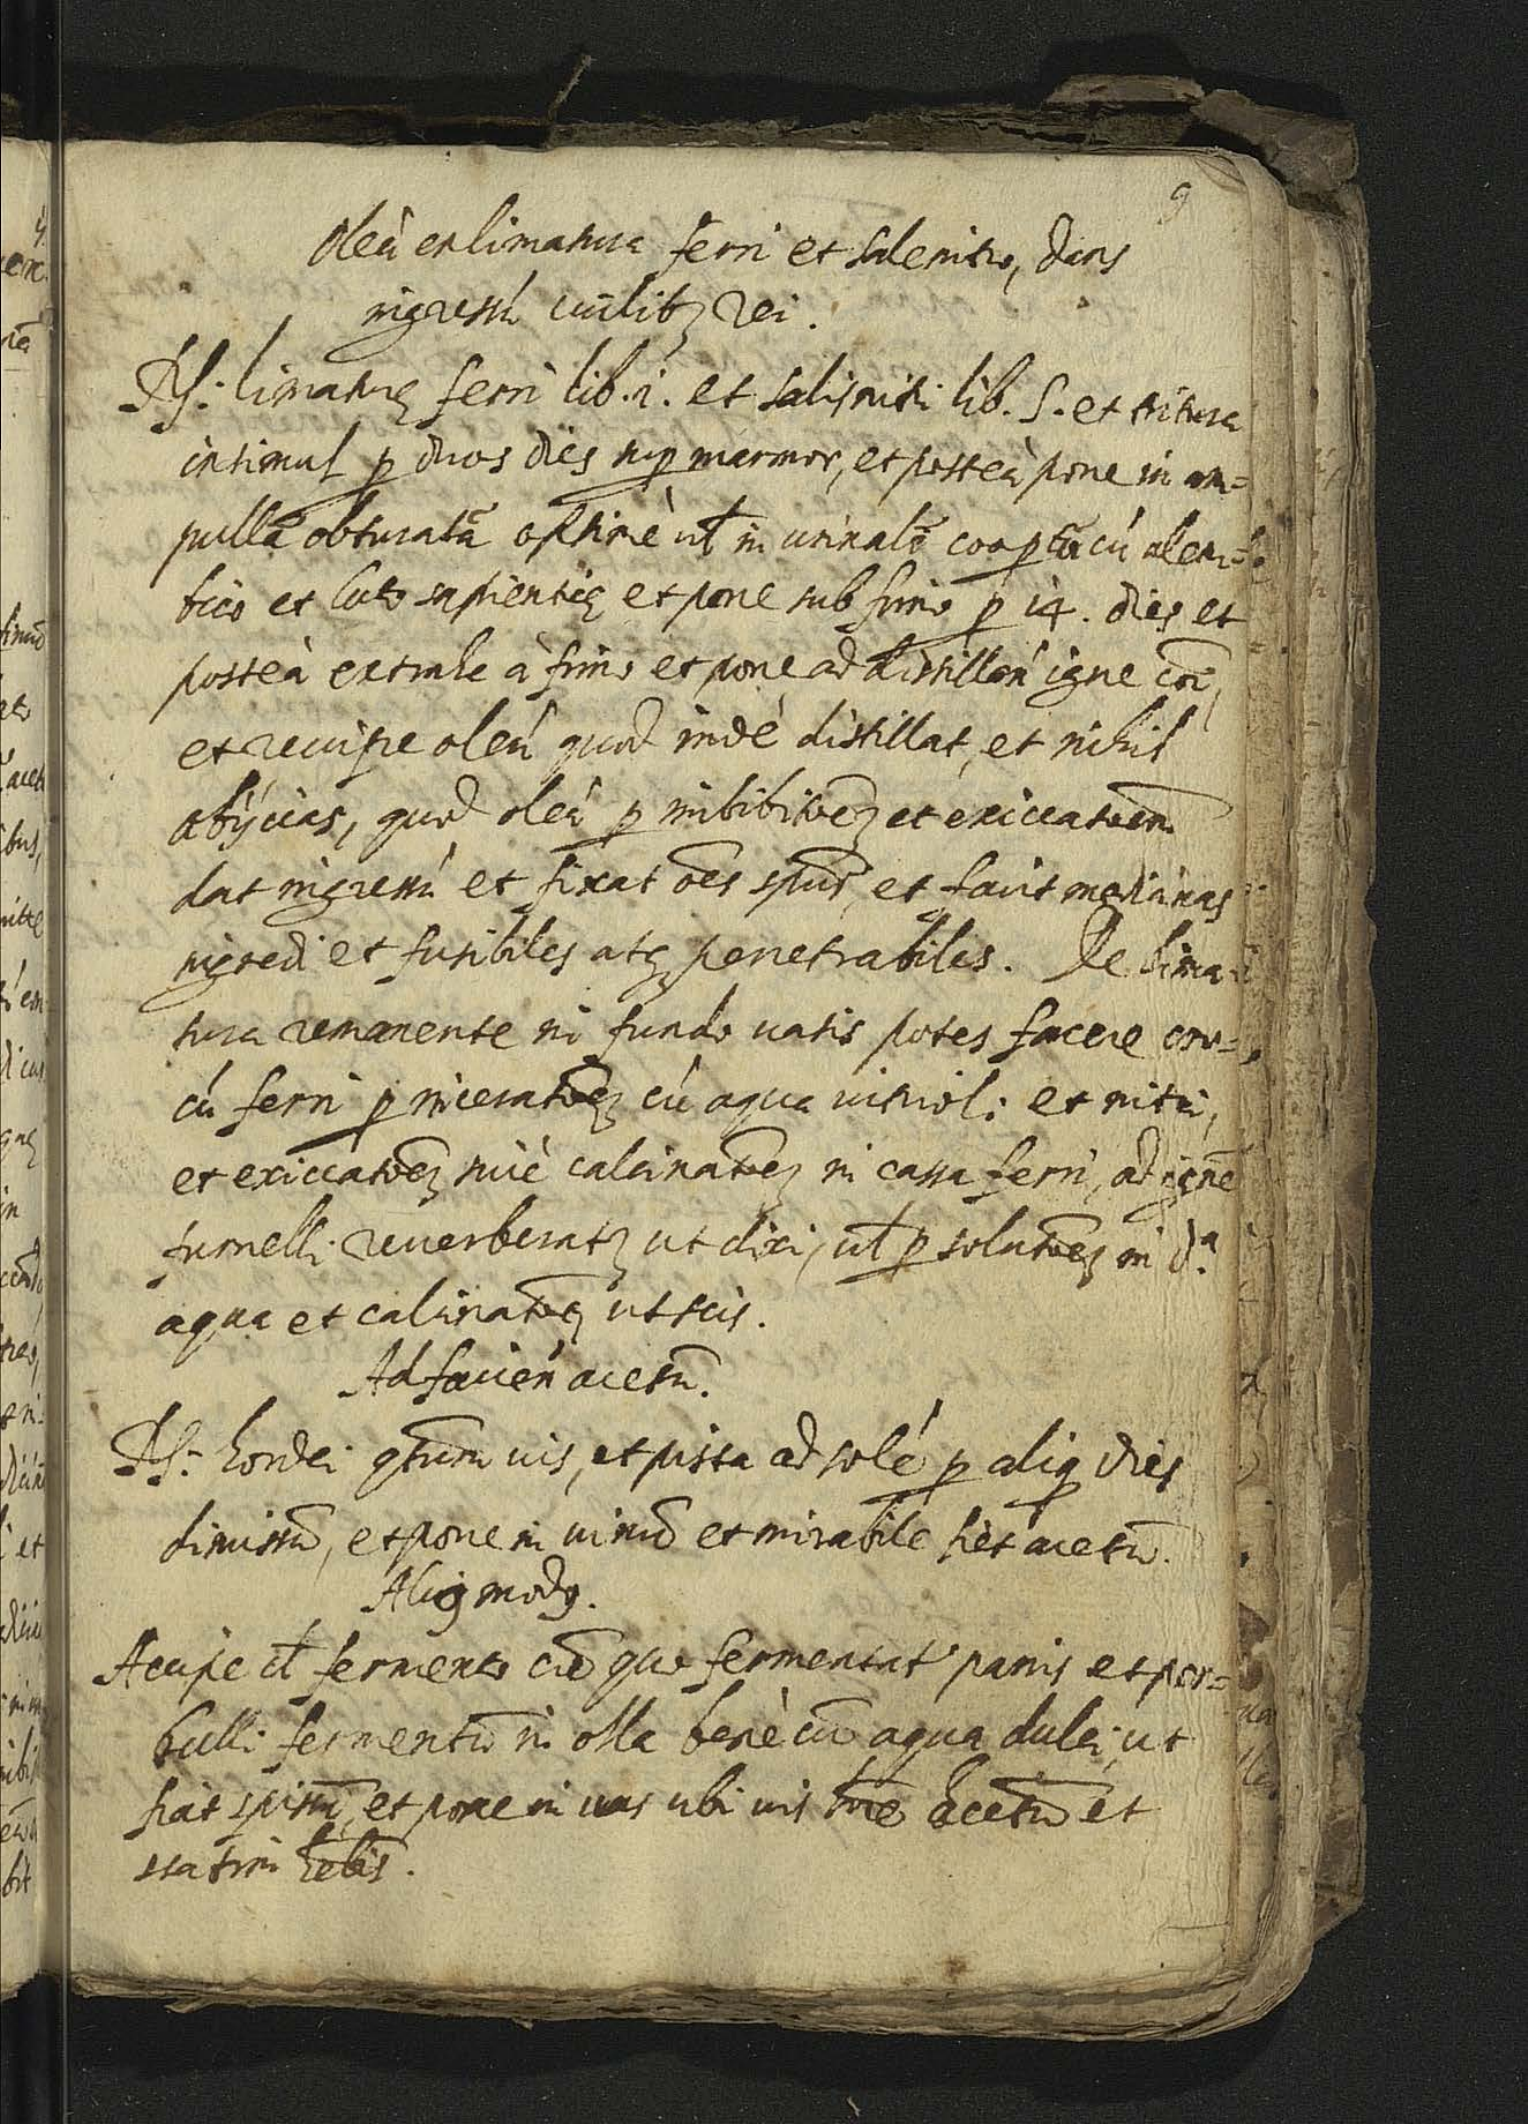 9
oleū ex limatura ferri et salenitro, dans
ingressū cuilibꝫ rei.
Rx: limaturę ferri lib. i. et salis nitri lib. S. et tritura
insimul ꝑ duos dies suꝑ marmor, et posteà pone in am=
pullā obturatā optimè ut̄ in urinalē cooꝑtū cū alem=
bico et luto sapientię et pone sub fimo ꝑ 14. dies et
posteà extrahe à fimo et pone ad distillan̄ igne
et recipe oleū quod indè distillat, et nihil
abÿcias, quod oleū ꝑ imbibitōeꝫ et exiccatōem
dat ingressū et fixat ōes spūs, et facit medicinas
ingredi et fusibiles atqꝫ penetrabiles. De lima=
tura remanente in fundo uasis potes facere cro=
cū ferri ꝑ inceratōeꝫ cū aqua uitrioli et nitri,
et exiccatōeꝫ siuè calcinatōeꝫ in cassa ferri, ad ignē
furnelli reuerberatꝫ ut dixi, ut̄ ꝑ solutōeꝫ in dᵃ.
aqua et calcinatōeꝫ ut scis.
Ad facien̄ acetū.
Rx: hordei qtum uis, et pista ad solē ꝑ aliq dies
dimissū, et pone in uinū et mirabile fiet acetū.
Aliꝯ modꝯ.
Accipe fermento cū quo fermentat panis et per=
bulli fermentū in olla benè cū aqua dulci, ut
fiat spissū, et pone in uas ubi uis acetū et
statim hēbis.